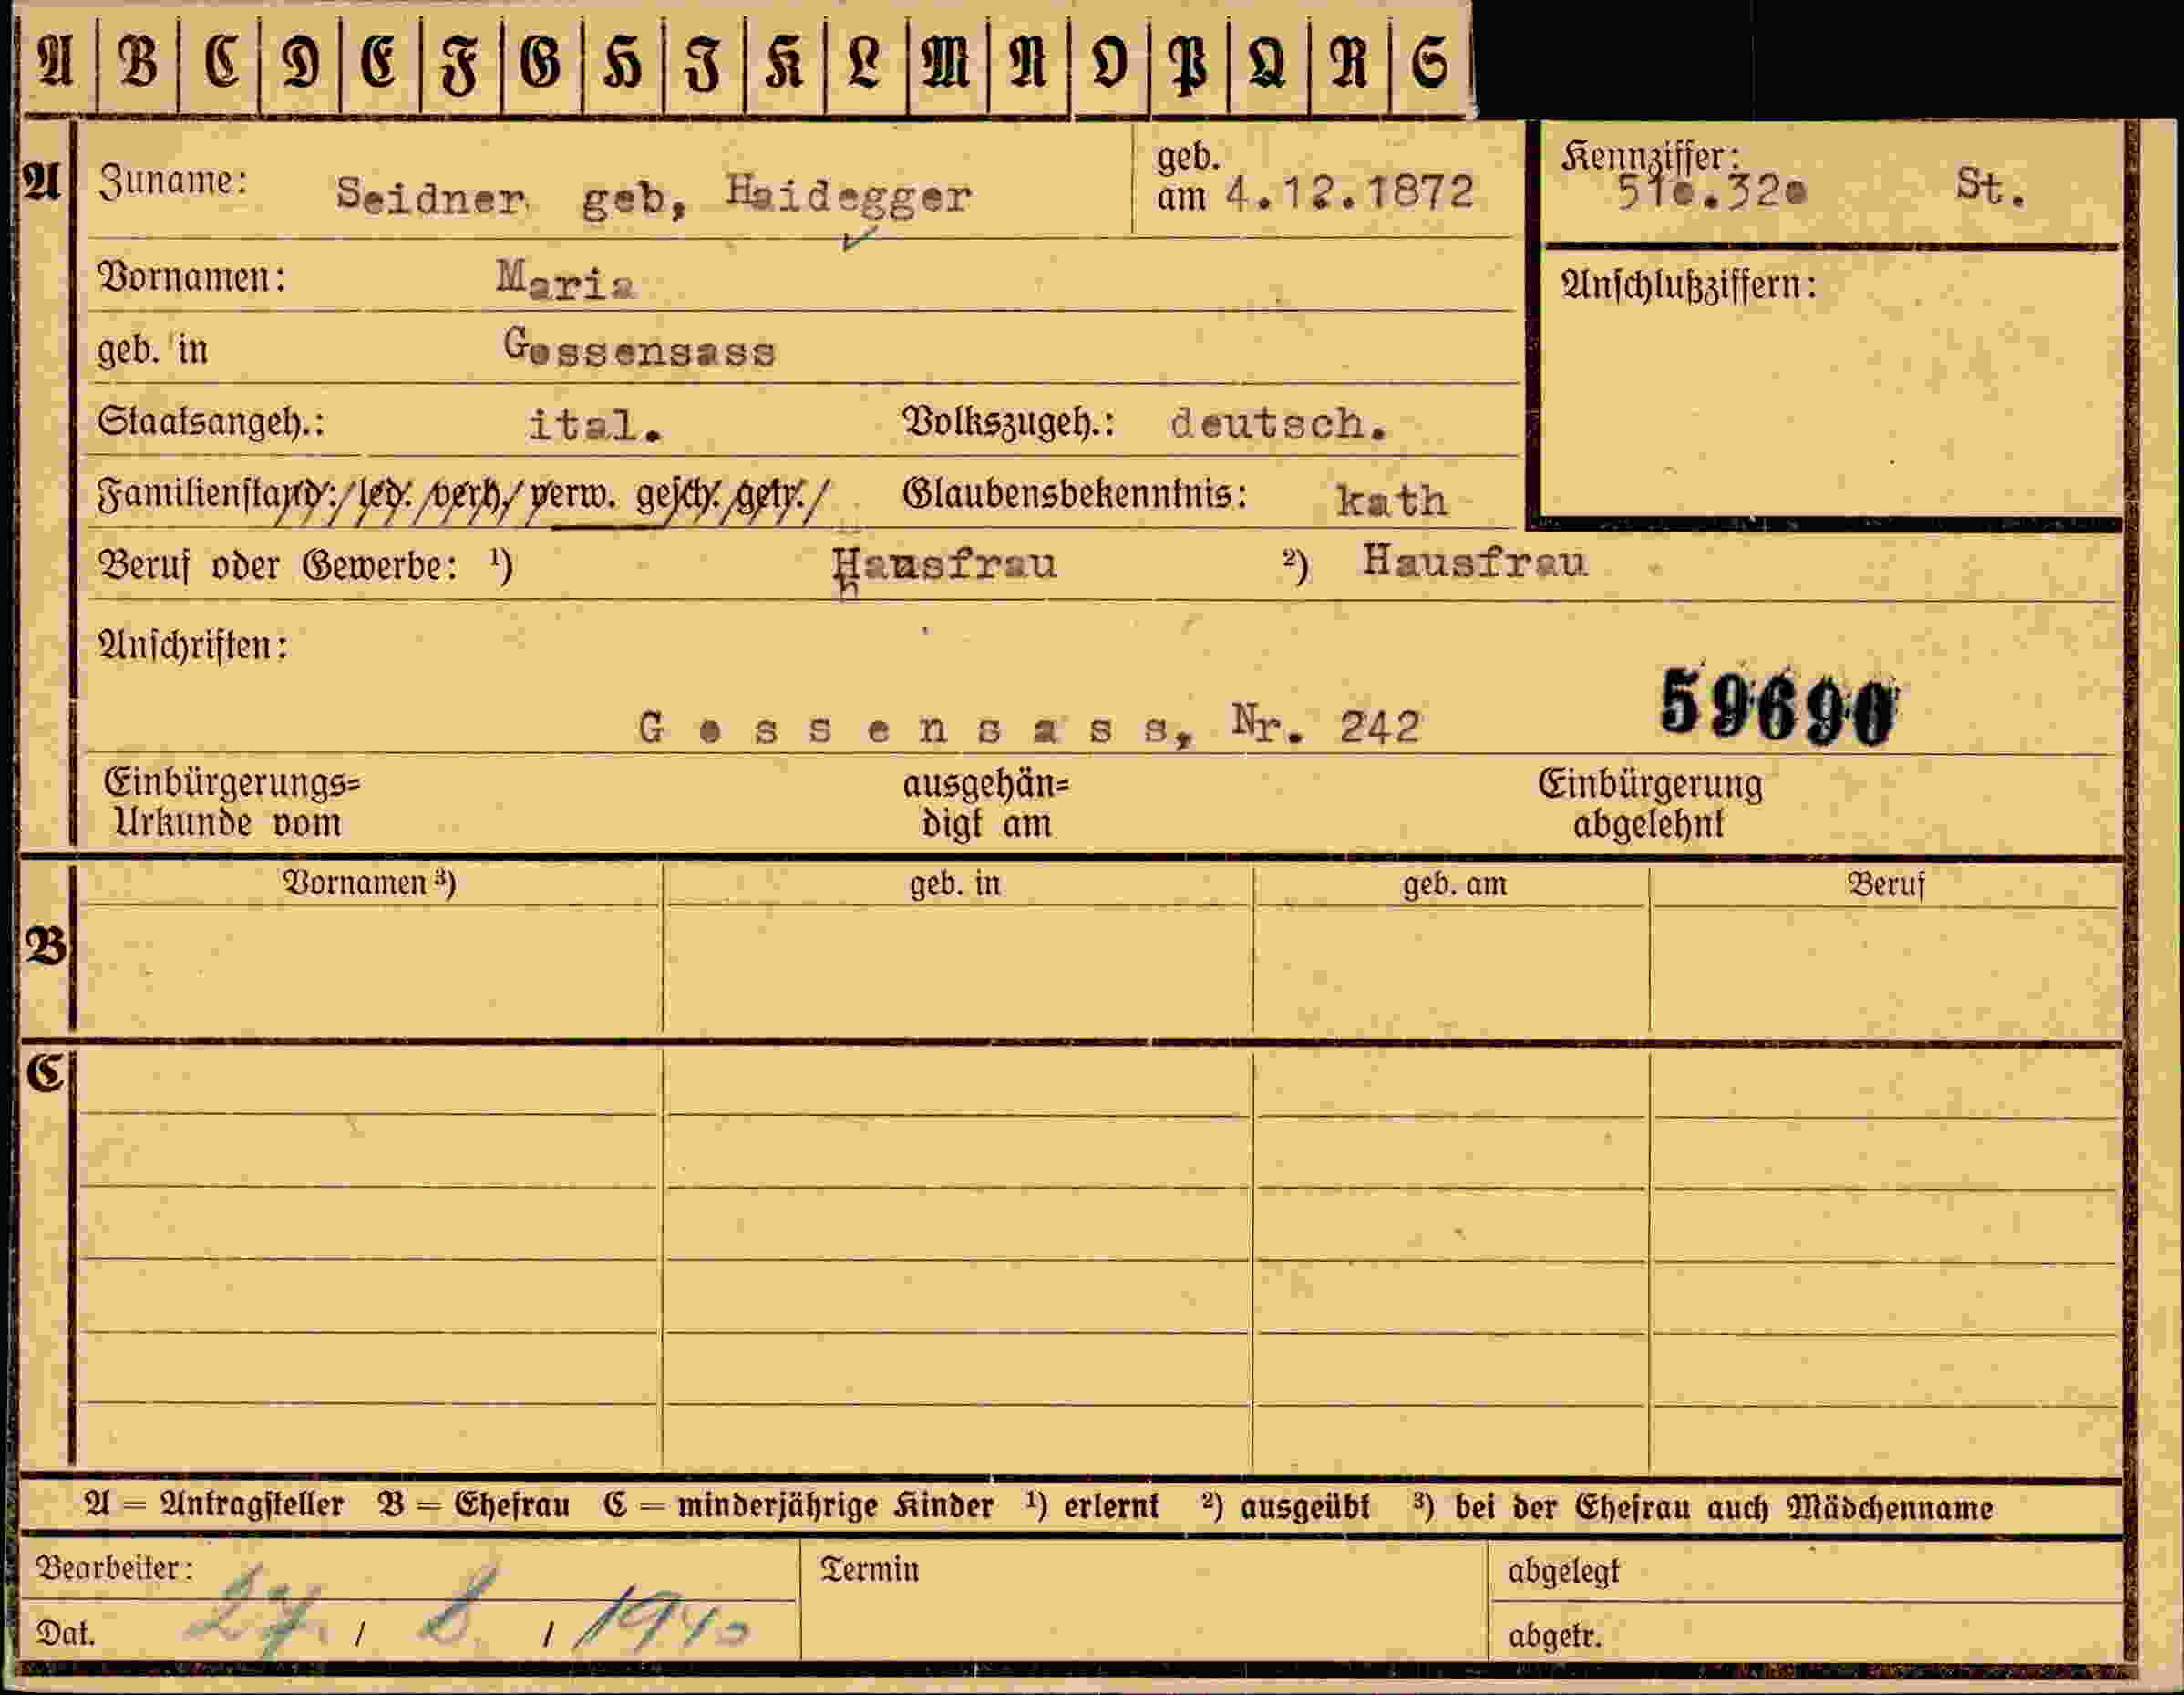 A B C D E F G H I K L M N O P Q R S
A Zuname: Seidner geb, Haidegger geb. am 4.12.1872
Kennziffer: 510.320 St.
Vornamen: Maria
Anschlußziffern:
geb. in Gossensass
Staatsangeh.: ital. Volkszugeh.: deutsch.
Familienstand: / led. / verh. / verw. gesch. / getr. / Glaubensbekenntnis: kath
Beruf oder Gewerbe: ¹) Hausfrau ²) Hausfrau
Anschriften:
G o s s e n s a s s, Nr. 242 59690
Einbürgerungs= ausgehän= Einbürgerung
Urkunde vom digt am abgelehnt
Vornamen ³) geb. in geb. am Beruf
B
C
A = Antragsteller B = Ehefrau C = minderjährige Kinder ¹) erlernt ²) ausgeübt ³) bei der Ehefrau auch Mädchenname
Bearbeiter: Termin abgelegt
Dat. 27. / 8. / 1940 abgetr.